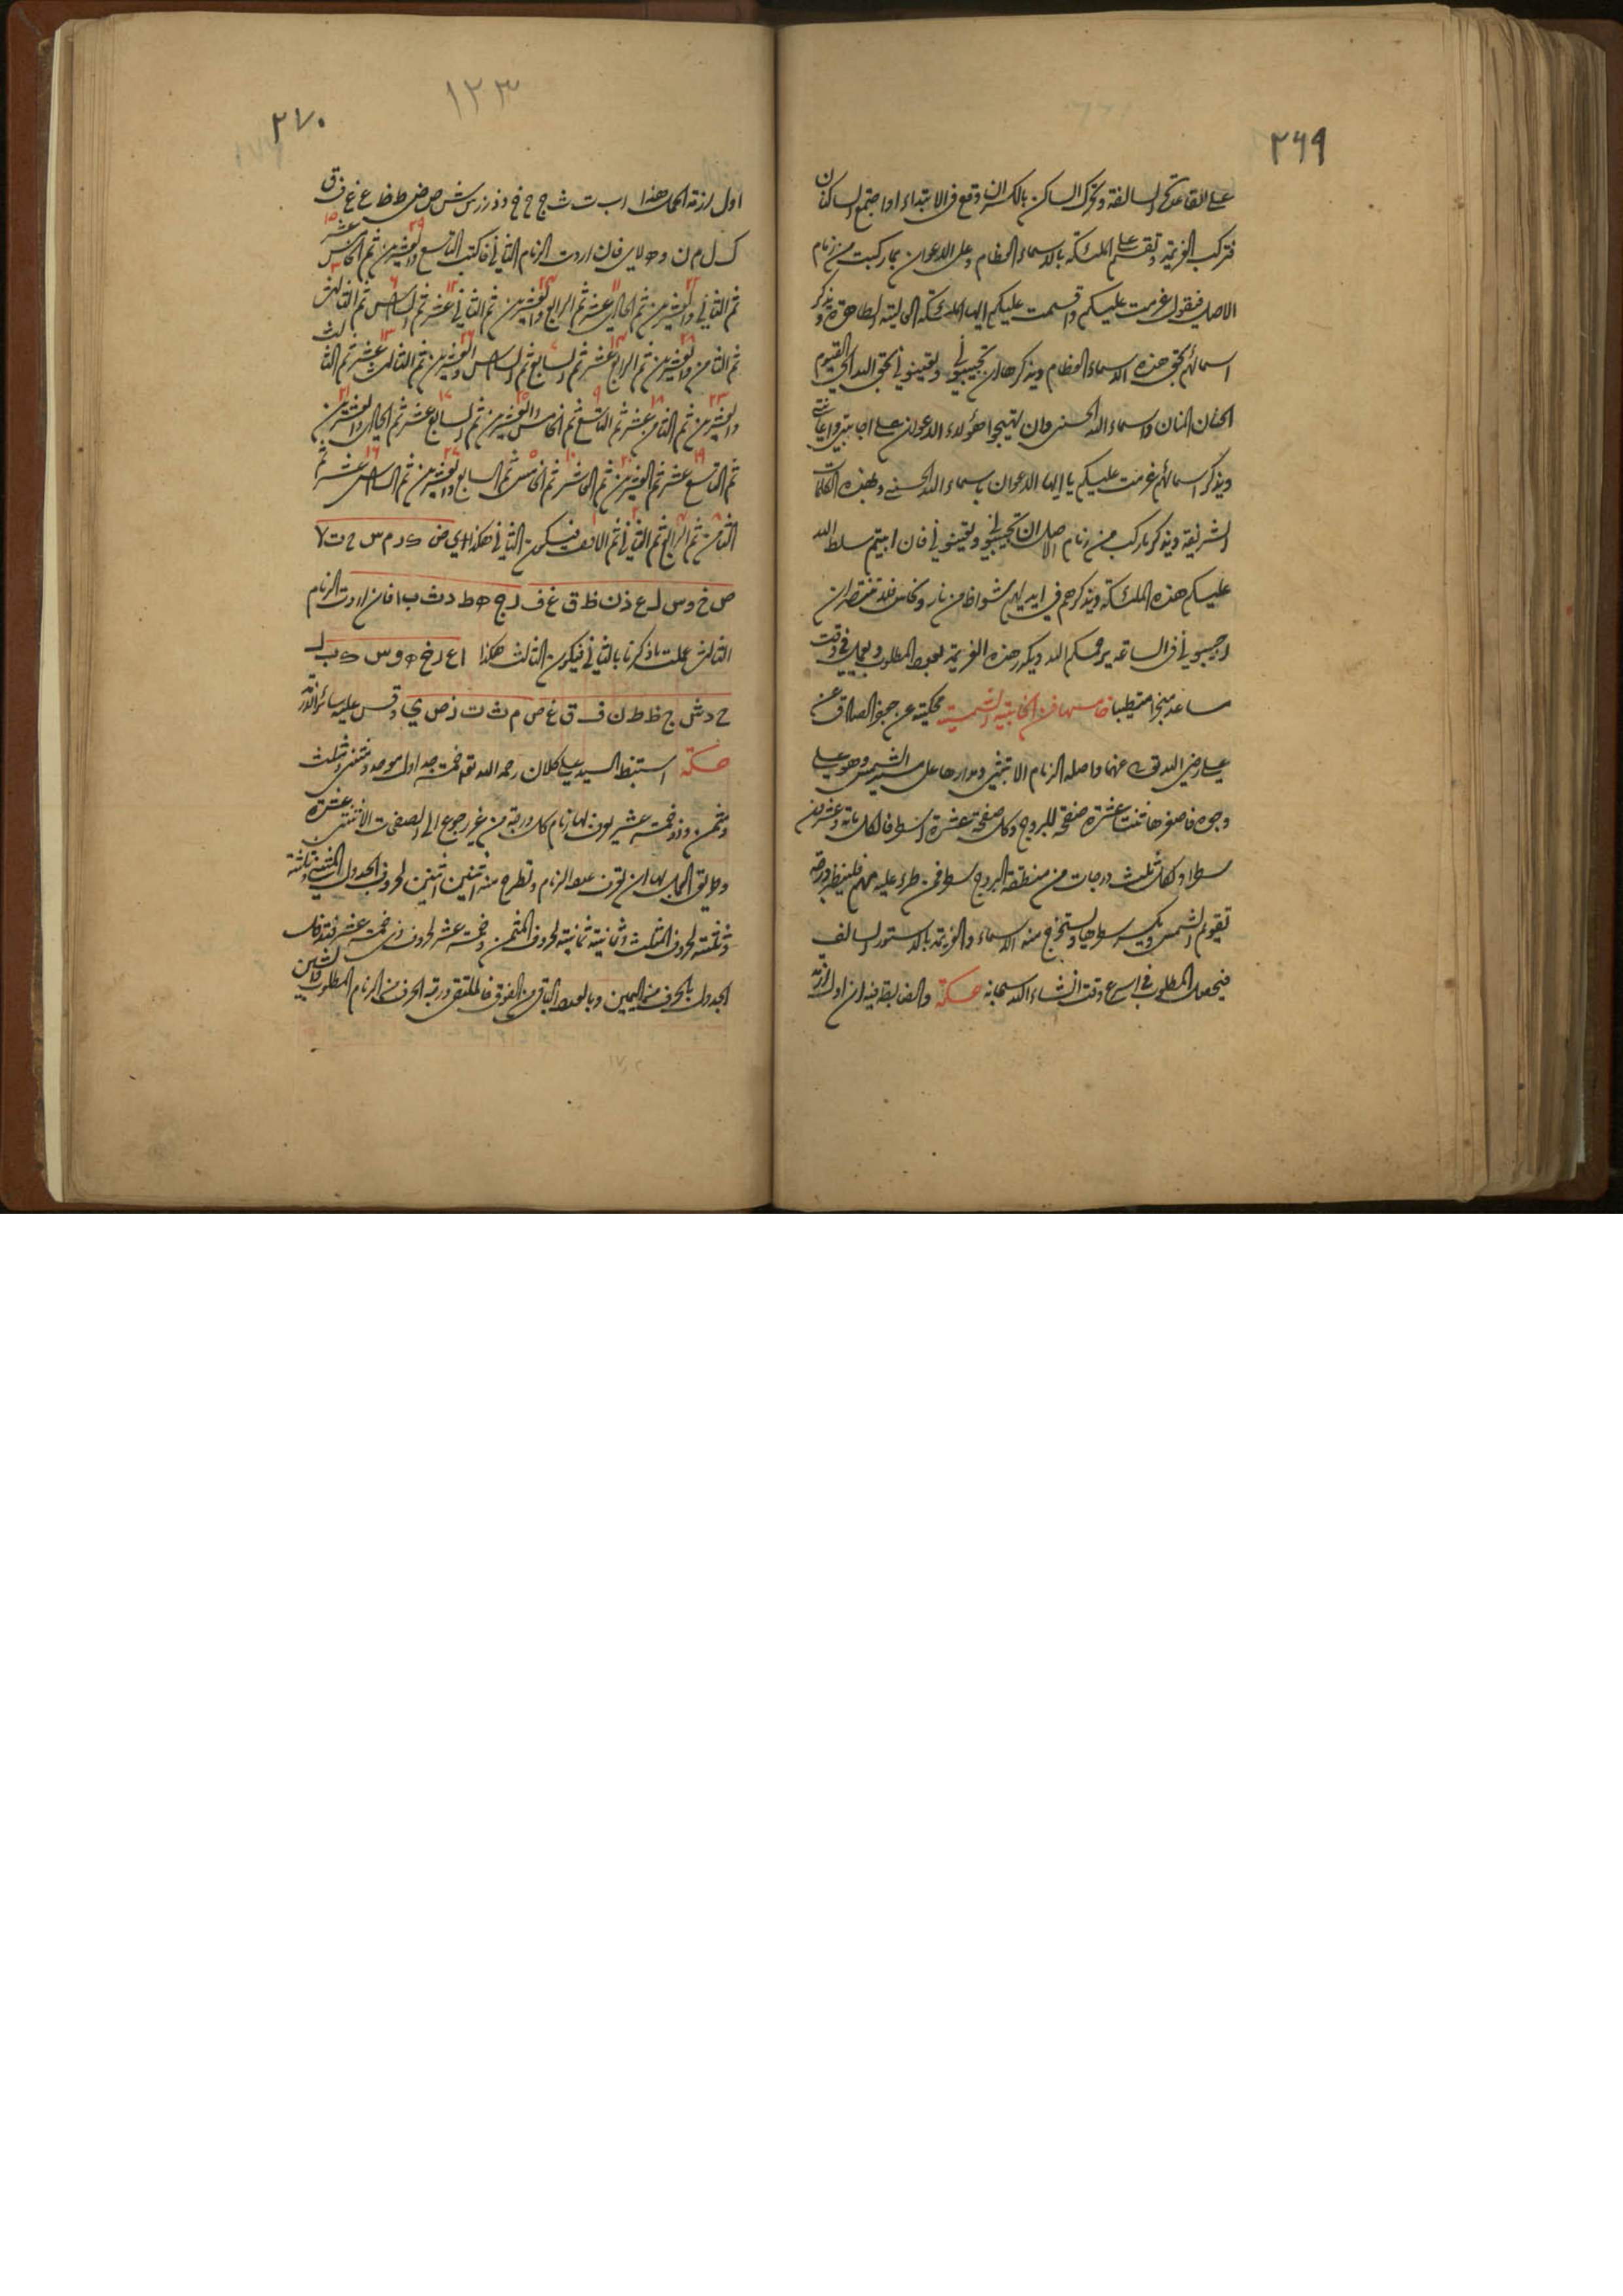 ٢٦٩
على القاعدة السالفة وتحرك الساكن بالكسر ان وقع في الابتداء او اجتمع الساكنان
فتركب العزيمة وتقسم على الملئكة بالاسماء العظام وعلى الاعوان بما ركبت من زمام
الاصل فيقول عزمت عليكم واقسمت عليكم ايها الملئكة العالية الطاهرة ويذكر
اسمائهم بحق هذه الاسماء العظام ويذكرها ان تجيبوني وتعينوني بحق الله الحي القيوم
الحنان المنان واسماء الله الحسنى وان تهيجوا هؤلاء الاعوان على اجابتي واعانتي
ويذكر اسمائهم عزمت عليكم يا ايها الاعوان باسماء الله الحسنى وبهذه الكلمات
الشريفة ويذكر ما ركب من زمام الاصل ان تجيبوني وتعينوني فان ابيتم سلط الله
عليكم هذه الملئكة ويذكرهم في ايديهم شواظ من نار ونحاس فلا تنتصران
اجيبوني في الساعة يرحمكم الله ويكرر هذه العزيمة بعدد المطلوب ويعمل في وقت
ساعد مبخرا متطيبا خامسها في الخافية الشمسية محكية عن جعفر الصادق عن
علي رضي الله عنهما واصله الزمام الابتثي ومدارها على سير الشمس وهو على
وجوه فاصغرها اثنتا عشرة صفحة للبروج وكل صفحة عشرة اسطر فالكل مائة وعشرون
سطرا ولكل ثلث درجات من منطقة البروج سطر فمن طرء عليه مهم فلينظر درجة
تقويم الشمس ويكسر سطرها ويستخرج منه الاسماء والعزيمة بالدستور السالف
فيحصل المطلوب في اسرع وقت انشاء الله سبحانه حكمة والضابطة فيه ان اول ازمة
١٢٣
٢٧٠
اول ازمة الحمل هذا ا ب ت ث ج ح خ د ذ ر ز س ش ص ض ط ظ ع غ ف ق
ك ل م ن و ه لا ي فان اردت الزمام الثاني فاكتب التاسع والعشرين ثم الخامس عشر
ثم الثاني والعشرين ثم الحادي عشر ثم الرابع والعشرين ثم الثاني عشر ثم السادس ثم الثالث
ثم الثامن والعشرين ثم الرابع عشر ثم السابع ثم السادس والعشرين ثم الثالث عشر ثم الثالث
والعشرين ثم الثامن عشر ثم التاسع ثم الخامس والعشرين ثم السابع عشر ثم الحادي والعشرين
ثم التاسع عشر ثم العشرين ثم العاشر ثم الخامس ثم السابع والعشرين ثم السادس عشر ثم
الثامن ثم الرابع ثم الثاني ثم الالف فيكون الثاني هكذا ي ض ك ز م س ح ت لا
ص خ و س ل ع ذ ن ظ ق غ ف ر ج ه ط د ث ب ا فان اردت الزمام
الثالث عملت ما ذكرنا بالثاني فيكون الثالث هكذا ا ع ر خ ه و س ك ب ل
ح د ش ج ظ ط ن ف ق غ ض م ث ت ز ص ي وقس عليه سائر الازمة
حكمة استنبط السيد علي كلان رحمه الله تع خمسة جداول موحد ومثنى ومثلث
ومثمن وذو خمسة عشر يعرف بها زمام كل درجة من غير رجوع الى الصفحات الاثنتي عشرة
وطريق العمل بها ان تعرف عدد الزمام وتطرح منه اثنين اثنين لحروف الجدول المثنى وثلثة
وثلثة لحروف المثلث وثمانية ثمانية لحروف المثمن وخمسة عشر لحروف ذي خمسة عشر فتدخل
الجدول بالحرف من اليمين وبالعدد الباقي من الفوق فالملتقى درجة الحرف من الزمام المطلوب